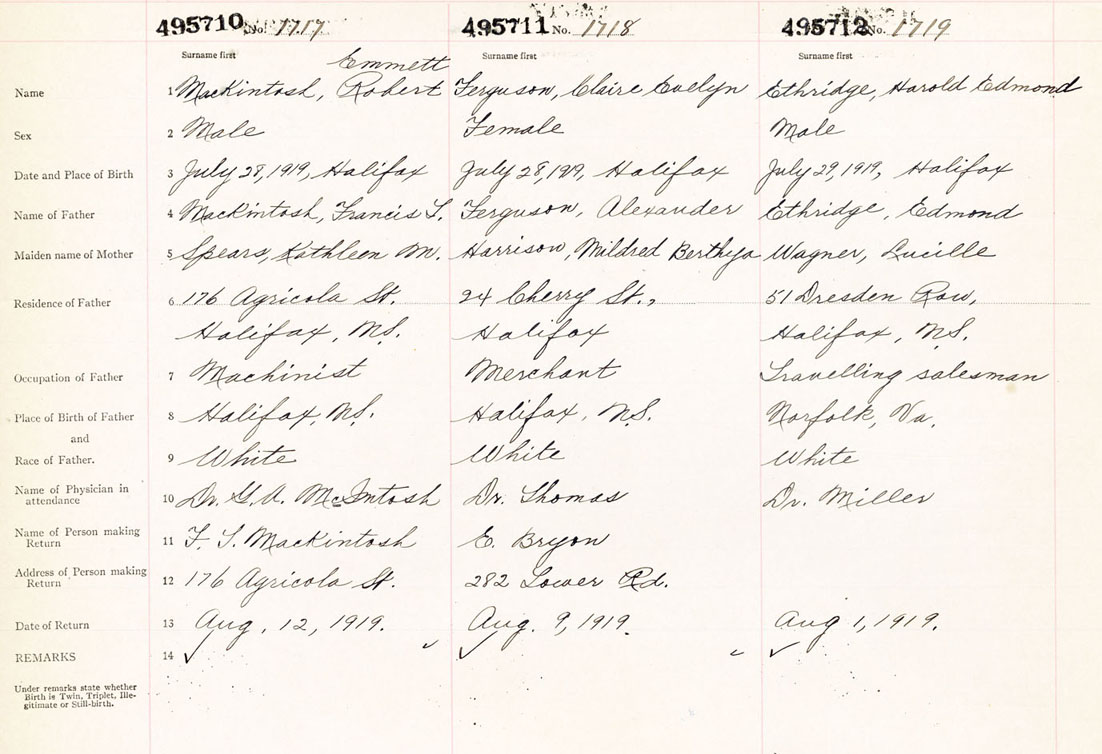 495710 No. 1717 495711 No. 1718 495712 No. 1719
Surname first Surname first Surname first
Emmett
Name 1 Mackintosh, Robert Ferguson, Claire Evelyn Ethridge, Harold Edmond
Sex 2 Male Female Male
Date and Place of Birth 3 July 28, 1919, Halifax July 28, 1919, Halifax July 29, 1919, Halifax
Name of Father 4 Mackintosh, Francis S. Ferguson, Alexander Ethridge, Edmond
Maiden name of Mother 5 Spears, Kathleen M. Harrison, Mildred Wagner, Lucille
Residence of Father 6 176 Agricola St. 24 Cherry St., 51 Dresden Row,
Halifax, N.S. Halifax Halifax, N.S.
Occupation of Father 7 Machinist Merchant Travelling salesman
Place of Birth of Father 8 Halifax, N.S. Halifax, N.S. Norfolk, Va.
and
Race of Father. 9 White White White
Name of Physician in
attendance 10 Dr. G. A. McIntosh Dr. Thomas Dr. Miller
Name of Person making
Return 11 F. S. Mackintosh E. Bryon
Address of Person making
Return 12 176 Agricola St. 282 Lower Rd.
Date of Return 13 Aug. 12, 1919. Aug. 9, 1919. Aug 1, 1919.
REMARKS 14 ✓ ✓ ✓ ✓ ✓
Under remarks state whether
Birth is Twin, Triplet, Ille-
gitimate or Still-birth.